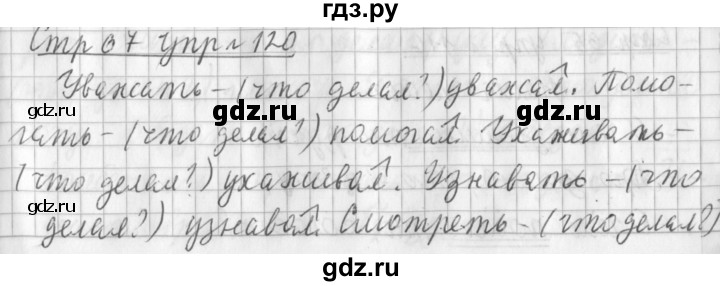 гдз.ру
Стр 67 упр. 120
Уважать – (что делал?) уважал. Помо-
гать – (что делал?) помогал. Ухаживать –
(что делал?) ухаживал. Узнавать – (что
делал?) узнавал. Смотреть – (что делал?)
gdz.ru gdz.ru
gdz.ru gdz.ru
gdz.ru